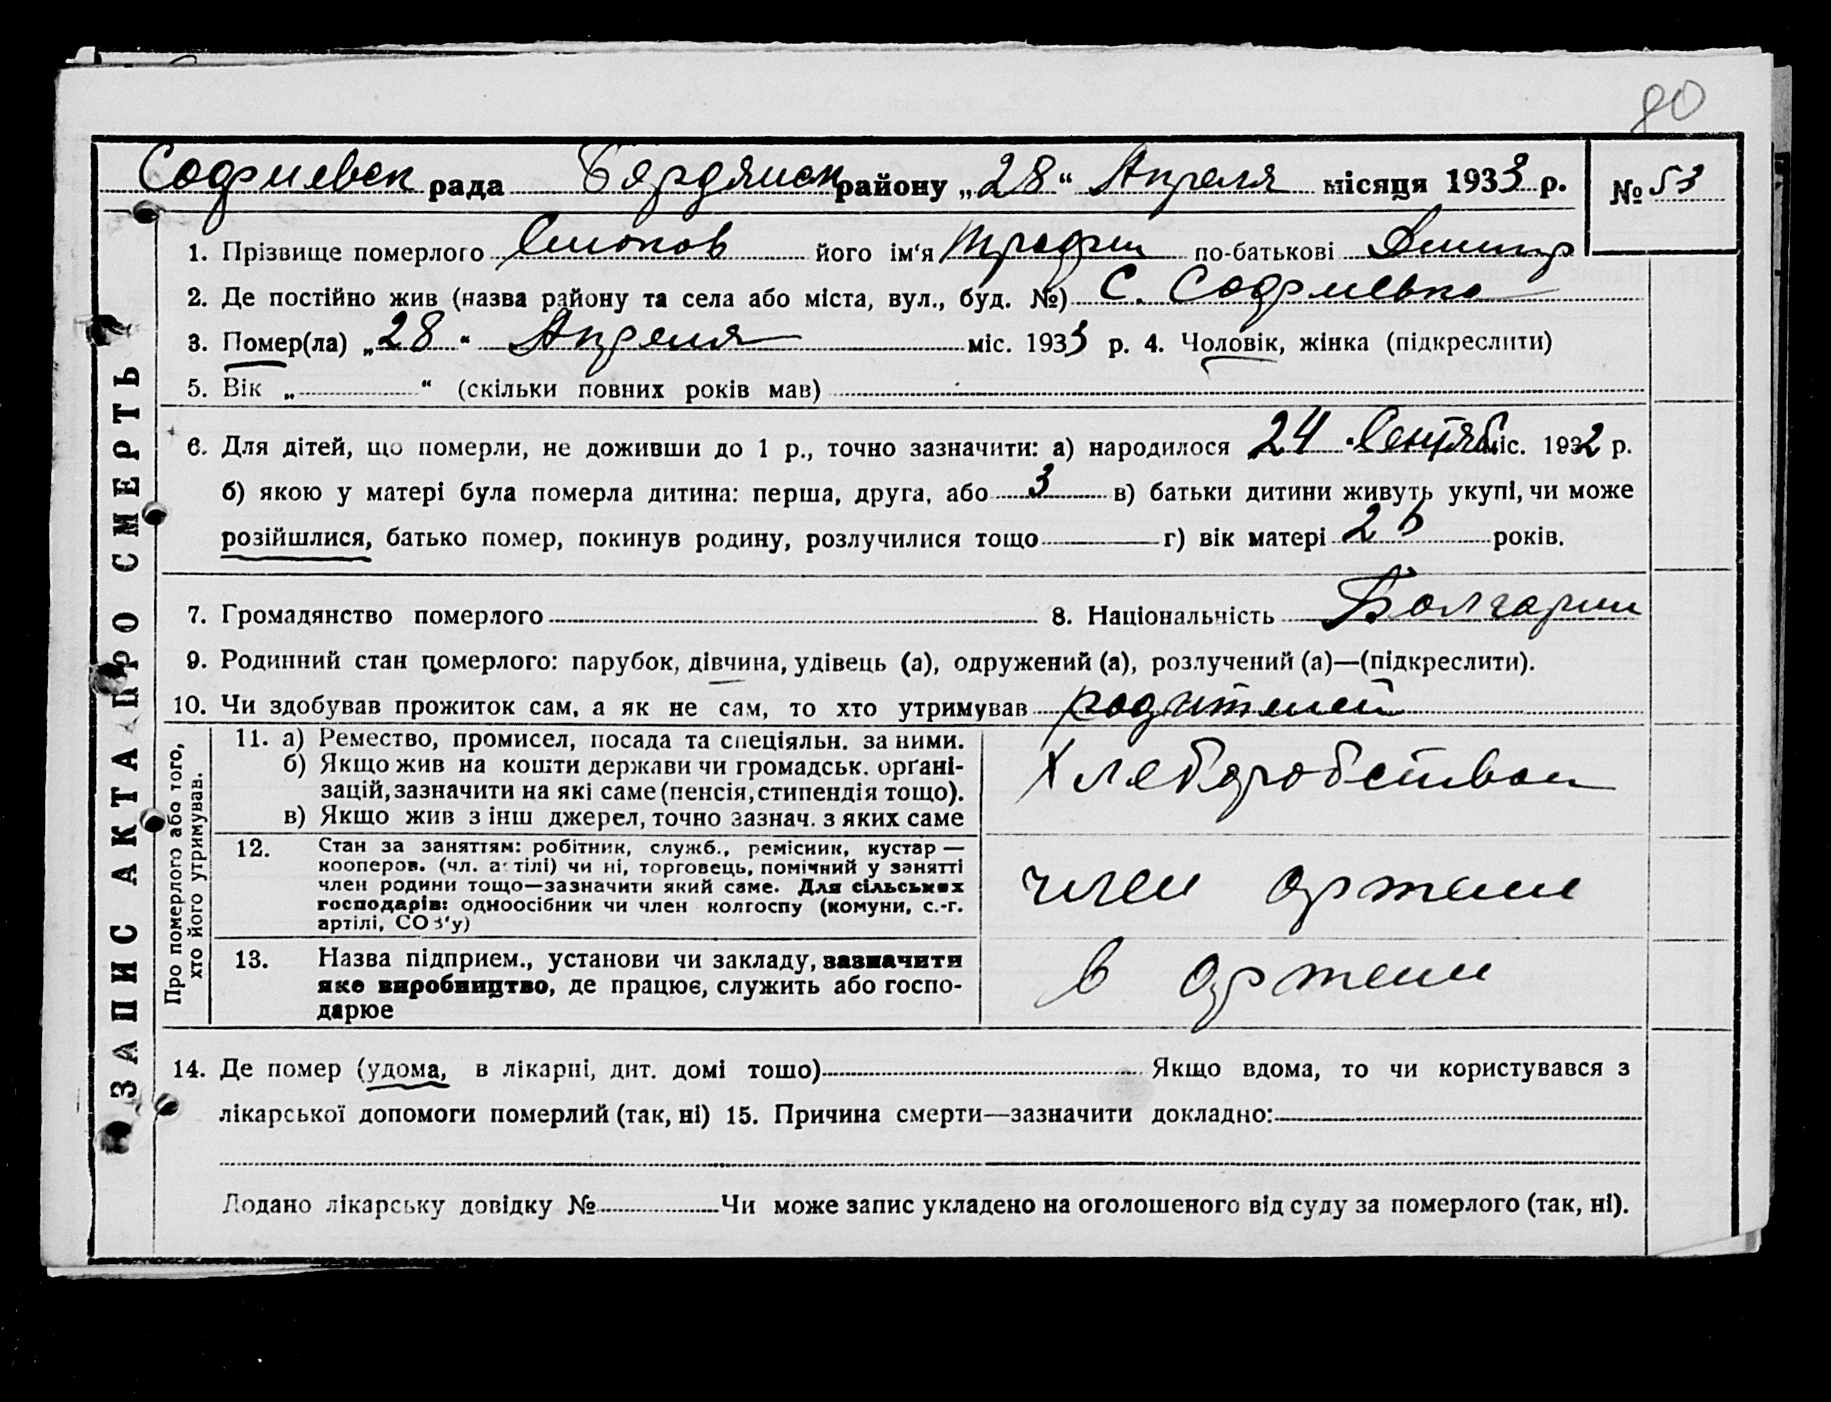 80
Софиевск рада Бердянск району „28“ Апреля місяця 1933 р. № 53
1. Прізвище померлого його ім'я по-батькові Дмитр
2. Де постійно жив (назва району та села або міста, вул., буд. №) С. Софиевка
3. Помер(ла) „28“ Апреля міс. 1933 р. 4. Чоловік, жінка (підкреслити)
5. Вік „ “ (скільки повних років мав)
6. Для дітей, що померли, не доживши до 1 р., точно зазначити: а) народилося 24 Сентяб міс. 1932 р.
б) якою у матері була померла дитина: перша, друга, або 3 в) батьки дитини живуть укупі, чи може
розійшлися, батько помер, покинув родину, розлучилися тощо г) вік матері років.
7. Громадянство померлого 8. Національність Болгарин
9. Родинний стан померлого: парубок, дівчина, удівець (а), одружений (а), розлучений (а)—(підкреслити).
10. Чи здобував прожиток сам, а як не сам, то хто утримував родителей
ЗАПИС АКТА ПРО СМЕРТЬ
Про померлого або того,
хто його утримував.
11. а) Ремество, промисел, посада та спеціяльн. за ними.
б) Якщо жив на кошти держави чи громадськ. органі-
зацій, зазначити на які саме (пенсія, стипендія тощо).
в) Якщо жив з інш джерел, точно зазнач. з яких саме
Хлеборобством
12. Стан за заняттям: робітник, служб., ремісник, кустар —
кооперов. (чл. артілі) чи ні, торговець, помічний у занятті
член родини тощо—зазначити який саме. Для сільських
господарів: одноосібник чи член колгоспу (комуни, с.-г.
артілі, СОЗ'у)
член артели
13. Назва підприєм., установи чи закладу, зазначити
яке виробництво, де працює, служить або госпо-
дарює
в артели
14. Де помер (удома, в лікарні, дит. домі тощо) Якщо вдома, то чи користувався з
лікарської допомоги померлий (так, ні) 15. Причина смерти—зазначити докладно:
Додано лікарську довідку № Чи може запис укладено на оголошеного від суду за померлого (так, ні).